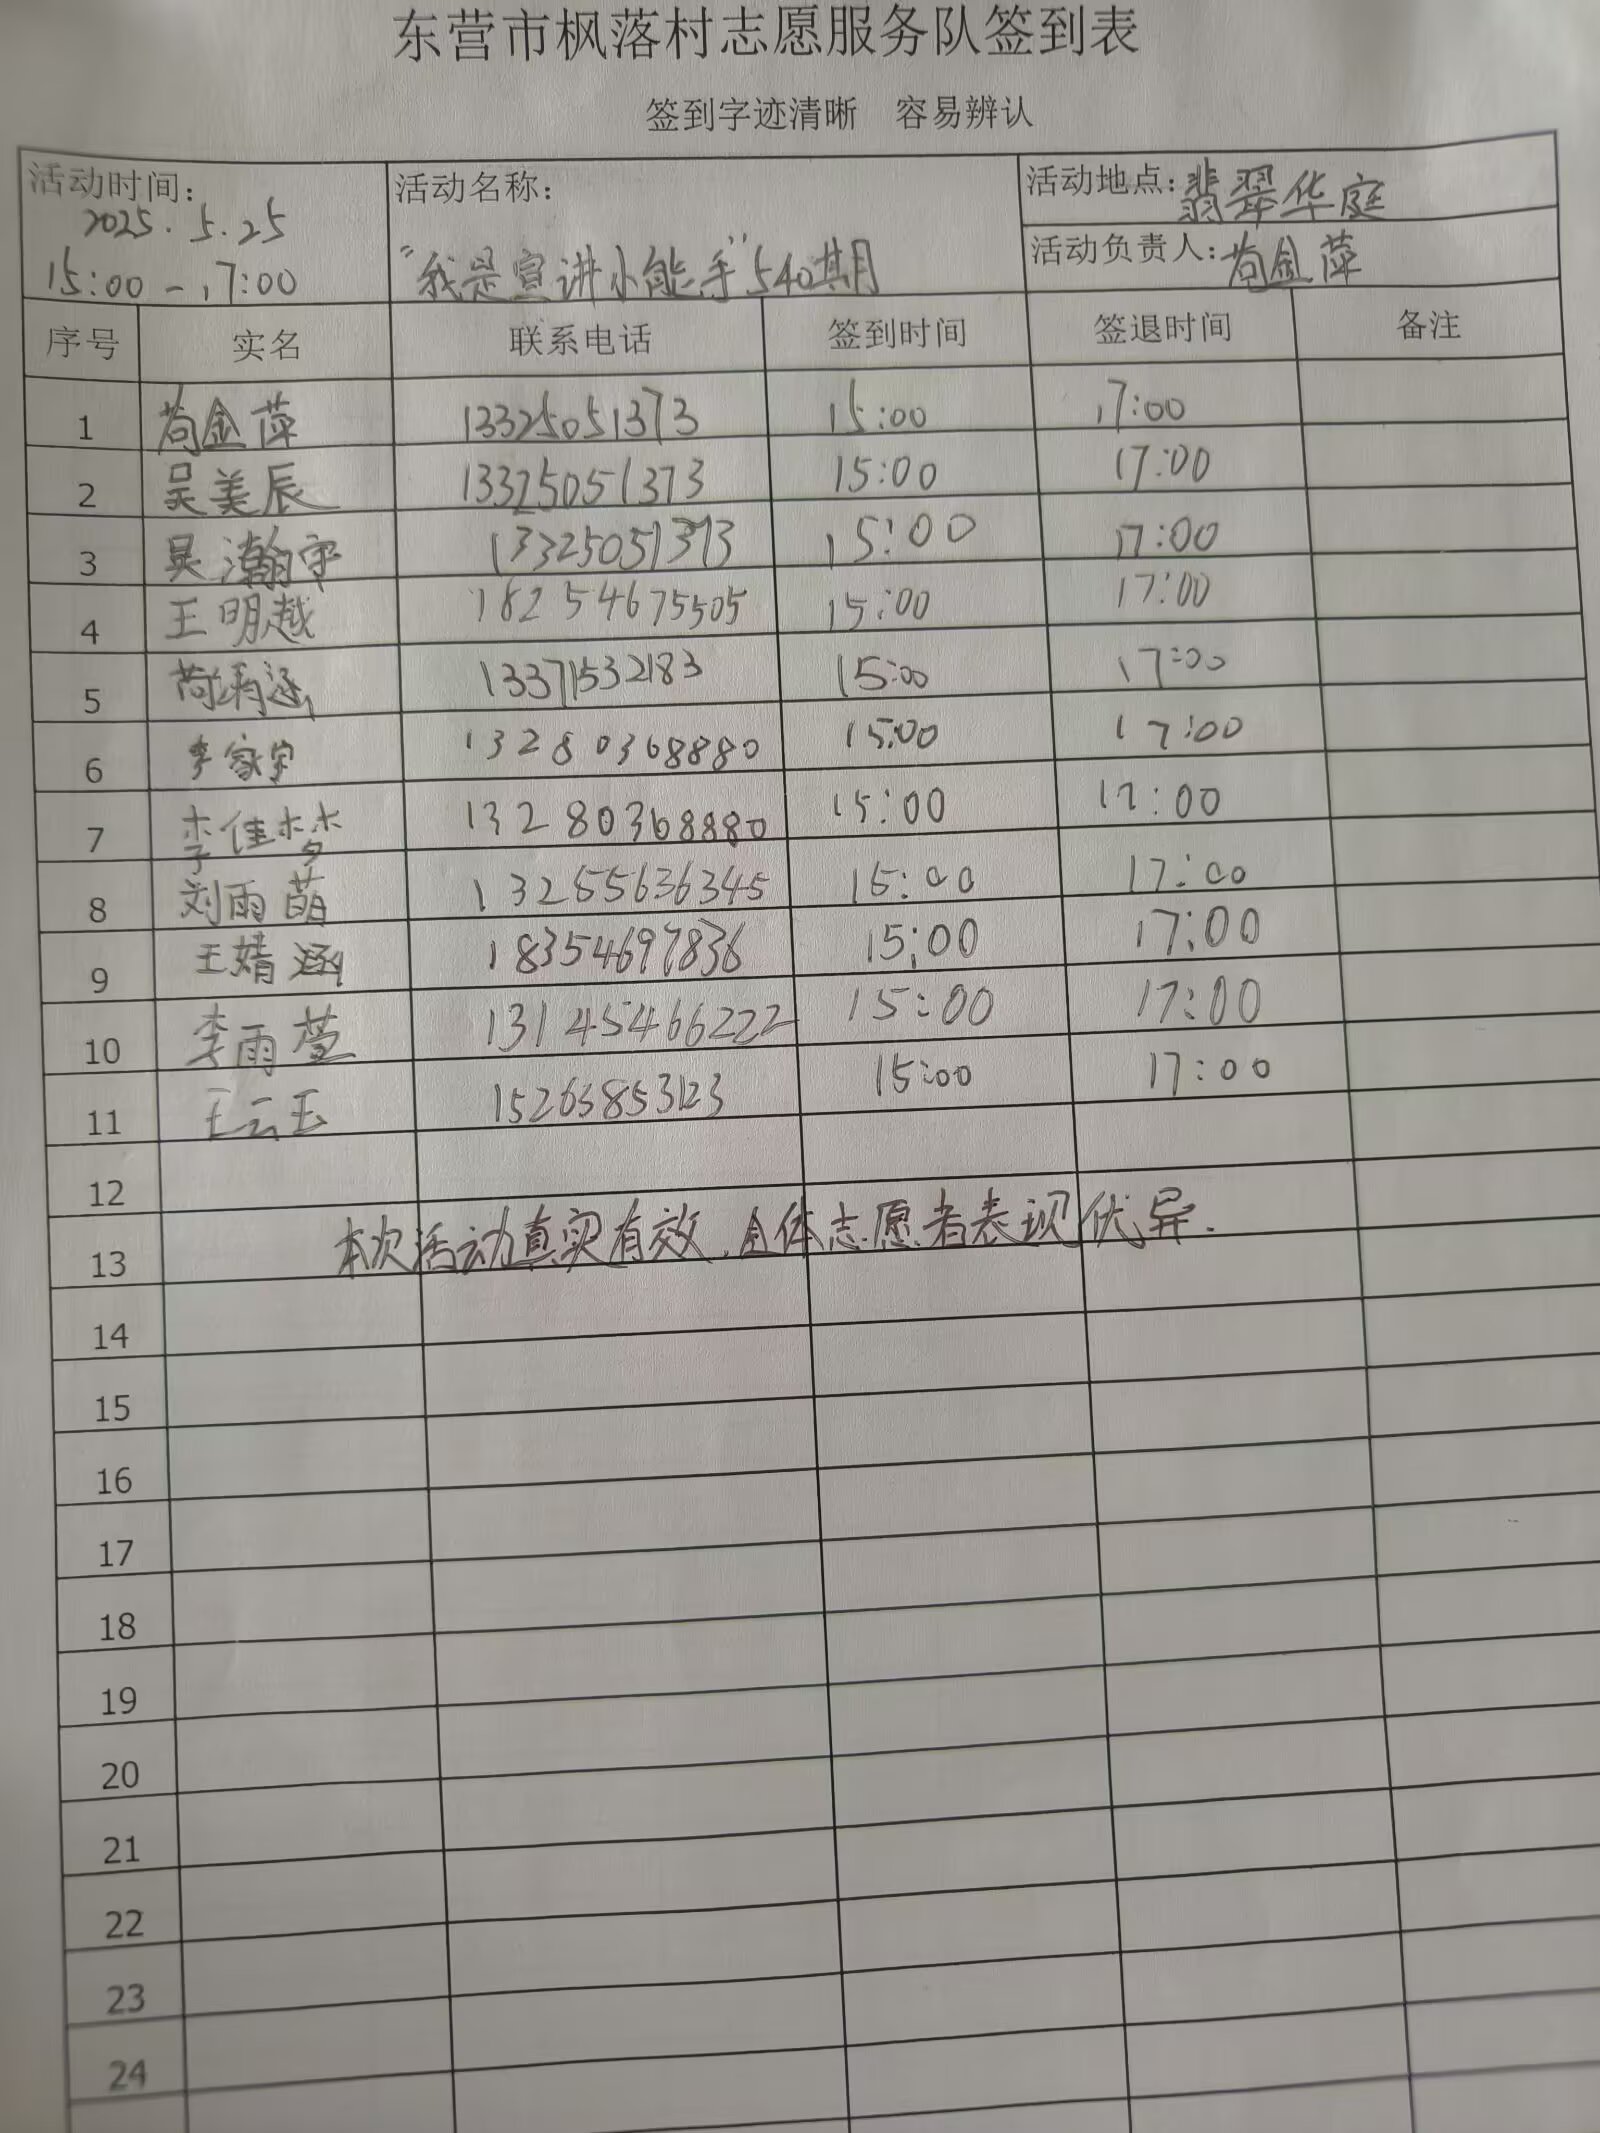 东营市枫落村志愿服务队签到表
签到字迹清晰 容易辨认
活动时间: 2025.5.25 15:00-17:00
活动名称: "我是宣讲小能手"540期
活动地点: 翡翠华庭
活动负责人: 苟金萍
序号 实名 联系电话 签到时间 签退时间 备注
1 苟金萍 13325051373 15:00 17:00
2 吴美辰 13325051373 15:00 17:00
3 吴瀚宇 13325051373 15:00 17:00
4 王明越 18254675505 15:00 17:00
5 13371532183 15:00 17:00
6 李家宇 13280368880 15:00 17:00
7 李佳梦 13280368880 15:00 17:00
8 刘雨萌 13255636345 15:00 17:00
9 王婧涵 18354697836 15:00 17:00
10 李雨萱 13145466222 15:00 17:00
11 王云玉 15263853123 15:00 17:00
12
13 本次活动真实有效,全体志愿者表现优异.
14
15
16
17
18
19
20
21
22
23
24